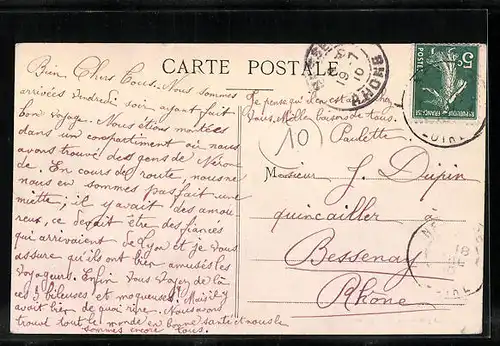 CARTE POSTALE
Bien Chers Tous. Nous sommes
arrivées Vendredi soir ayant fait
bon voyage. Nous étions montées
dans un compartiment où nous
avons trouvé des gens de Néron
de. En cours de route, nous ne
nous en sommes pas fait une
miette; il y avait des amou
reux, ce devait être des fiancés
qui arrivaient de Lyon et je vous
assure qu'ils ont bien amusé les
voyageurs. Enfin vous voyez de là
ces 3 bileuses et moqueuses! Mais il y
avait bien de quoi rire. Nous avons
trouvé tout le monde en bonne santé et nous le
sommes encore tous.
Je pense qu'il en est chez
Vous. Mille baisers de tous.
Paulette
10
Monsieur J. Dupin
quincailler à
Bessenay
Rhône
5c
POSTES
RHONE
18